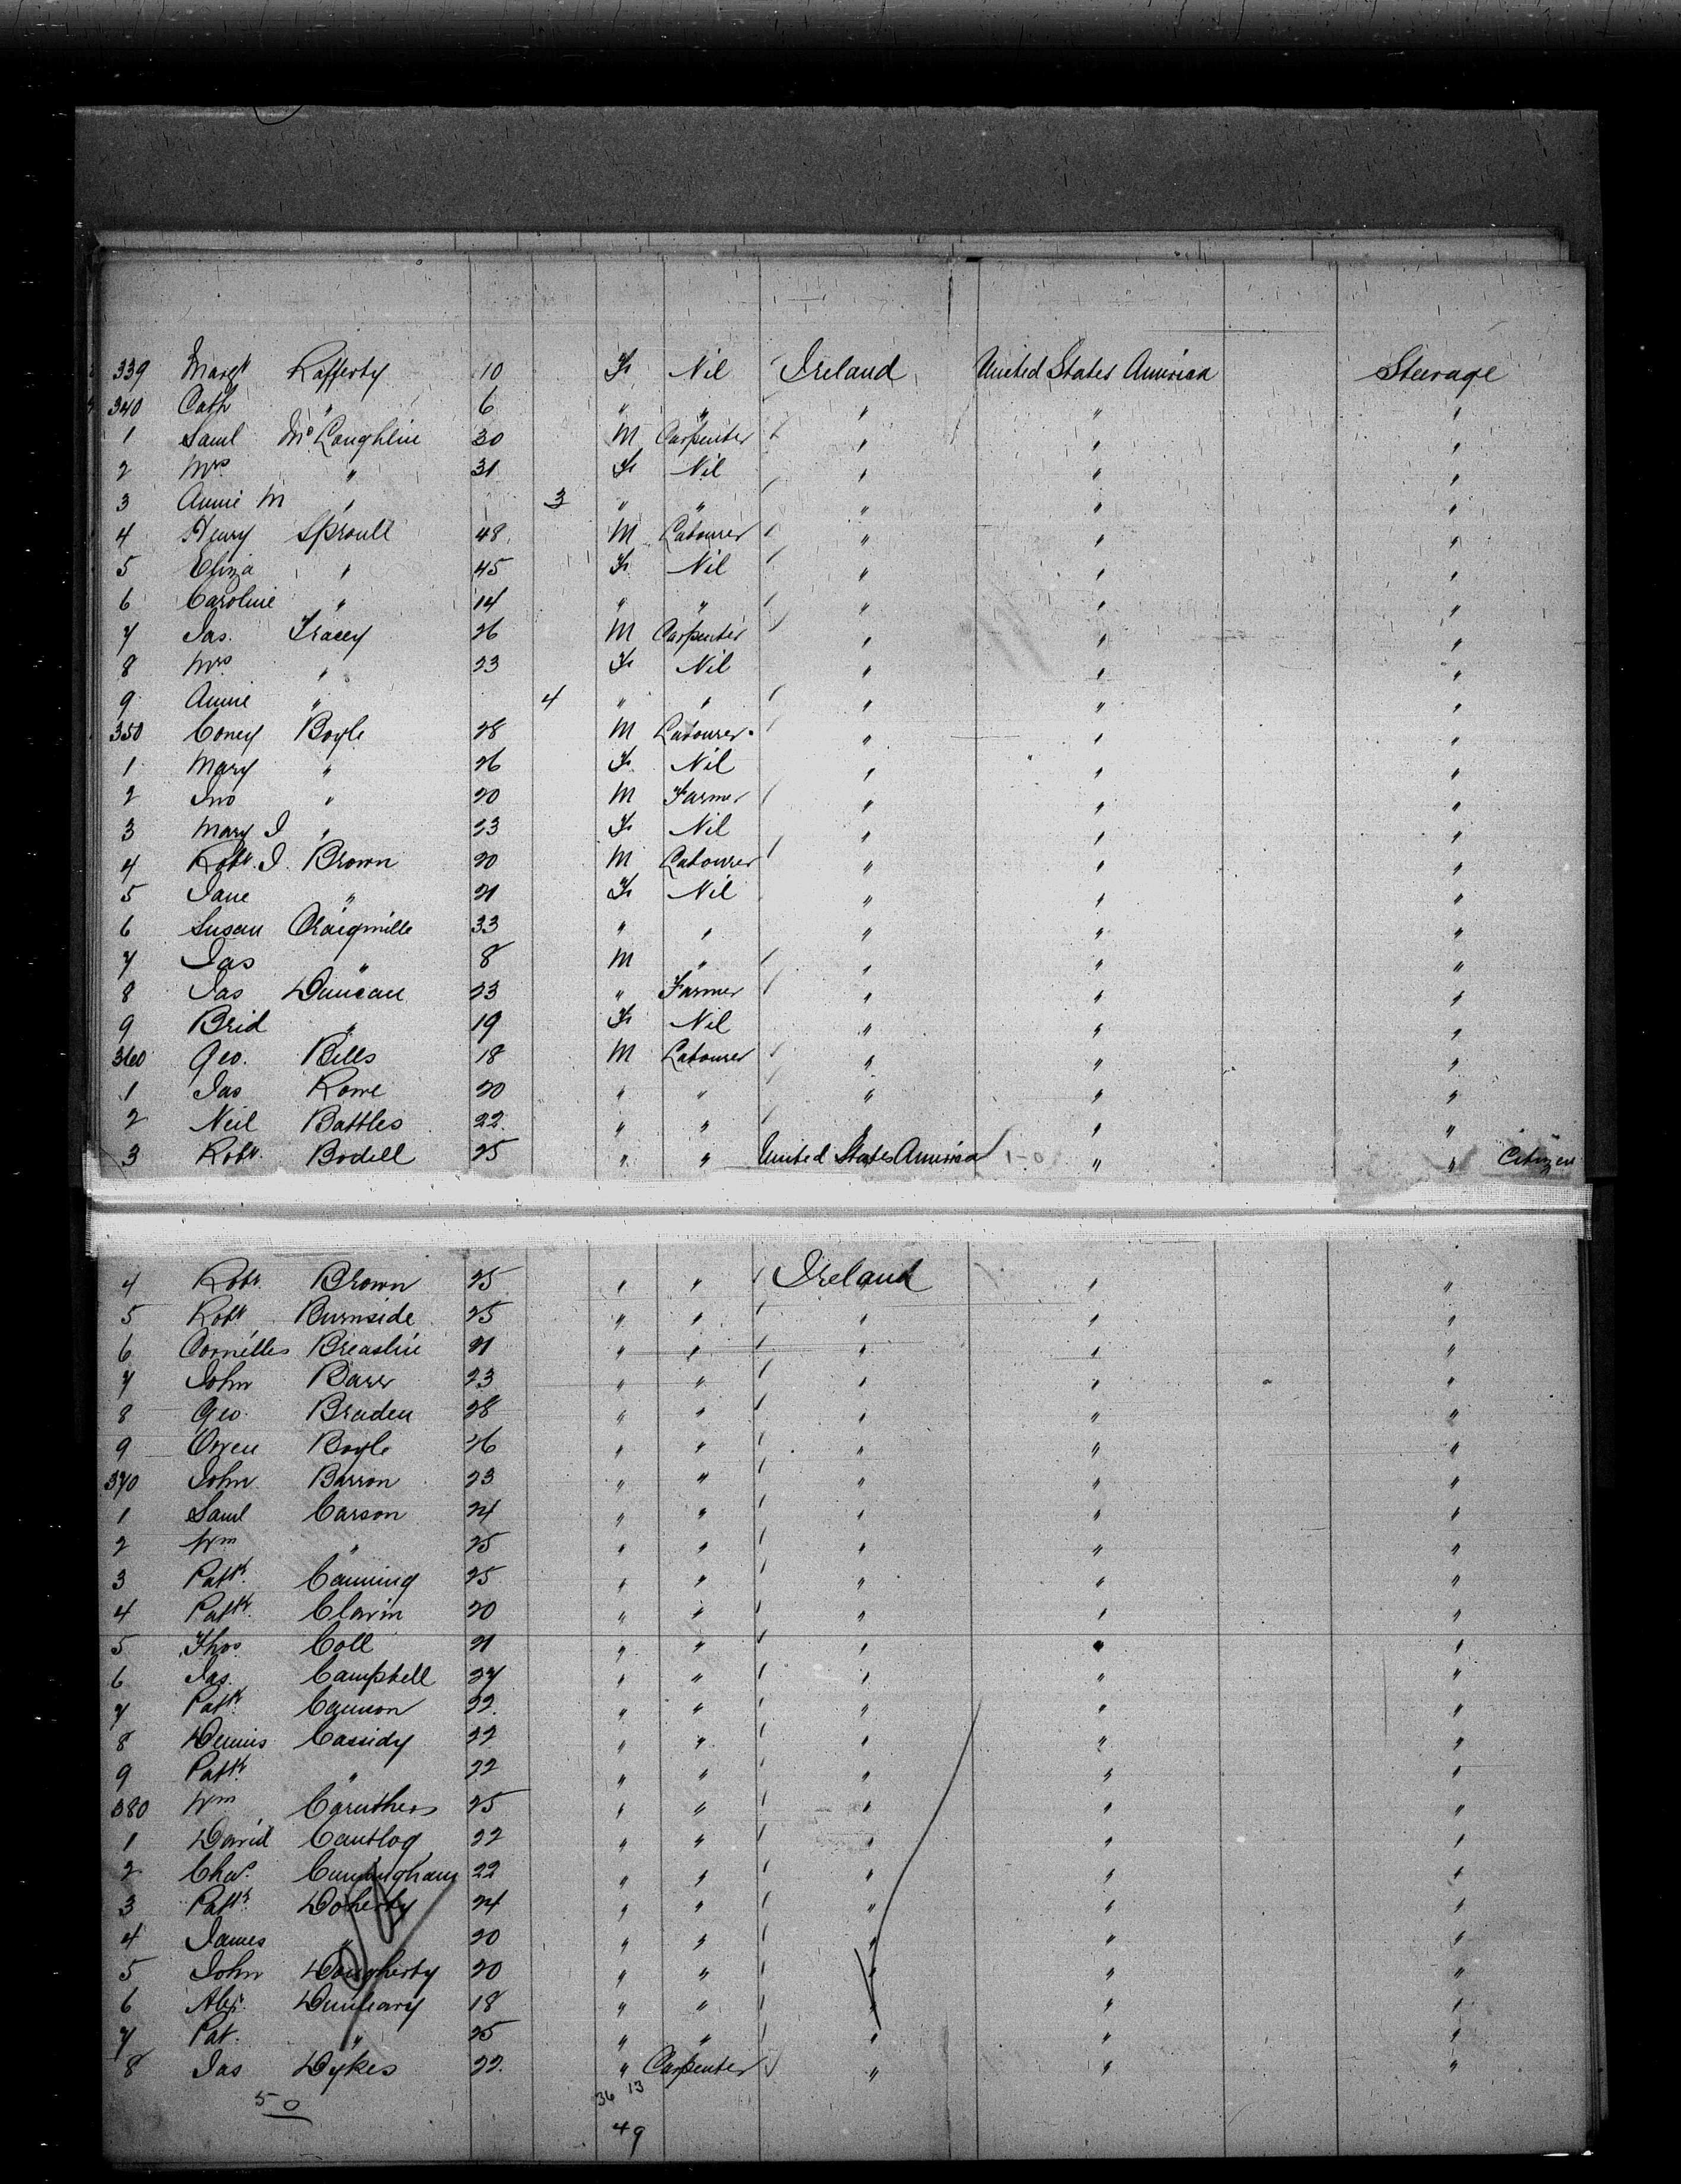 339 Margt Rafferty 10 F Nil Ireland United States America Steerage
340 Cath " 6 " " " " "
1 Saml McLoughlin 30 M Carpenter " " "
2 Mrs " 31 F Nil " " "
3 Annie M " 3 " " " " "
4 Henry Sproull 48 M Labourer " " "
5 Eliza " 45 F Nil " " "
6 Caroline " 14 " " " " "
7 Jas. Tracey 26 M Carpenter " " "
8 Mrs " 23 F Nil " " "
9 Annie " 4 " " " " "
350 Coney Boyle 28 M Labourer " " "
1 Mary " 26 F Nil " " "
2 Jno " 20 M Farmer " " "
3 Mary J " 23 F Nil " " "
4 Robt. J. Brown 20 M Labourer " " "
5 Jane " 21 F Nil " " "
6 Susan Craigmille 33 " " " " "
7 Jas " 8 M " " " "
8 Jas Duncan 23 " Farmer " " "
9 Brid " 19 F Nil " " "
360 Geo. Bills 18 M Labourer " " "
1 Jas Rowe 20 " " " " "
2 Neil Battles 22 " " " " "
3 Robt. Bodell 25 " " United States America " " Citizen
4 Robt. Brown 25 " " Ireland " "
5 Robt Burnside 25 " " " " "
6 Cornelles Breaslin 21 " " " " "
7 John Barr 23 " " " " "
8 Geo. Braden 28 " " " " "
9 Owen Boyle 26 " " " " "
370 John Barron 23 " " " " "
1 Saml Carson 24 " " " " "
2 Wm " 25 " " " " "
3 Patk. Canning 25 " " " " "
4 Patk. Clavin 20 " " " " "
5 Thos Coll 21 " " " " "
6 Jas. Campbell 27 " " " " "
7 Patk. Cannon 22 " " " " "
8 Dennis Cassidy 22 " " " " "
9 Patk. " 22 " " " " "
380 Wm Caruthers 25 " " " " "
1 David 22 " " " " "
2 Chas. Cunningham 22 " " " " "
3 Patk. Doherty 24 " " " " "
4 James " 20 " " " " "
5 John Dougherty 20 " " " " "
6 Alex. Dunleavy 18 " " " " "
7 Pat. " 25 " " " " "
8 Jas Dykes 22 " Carpenter " " "
50 36 13
49